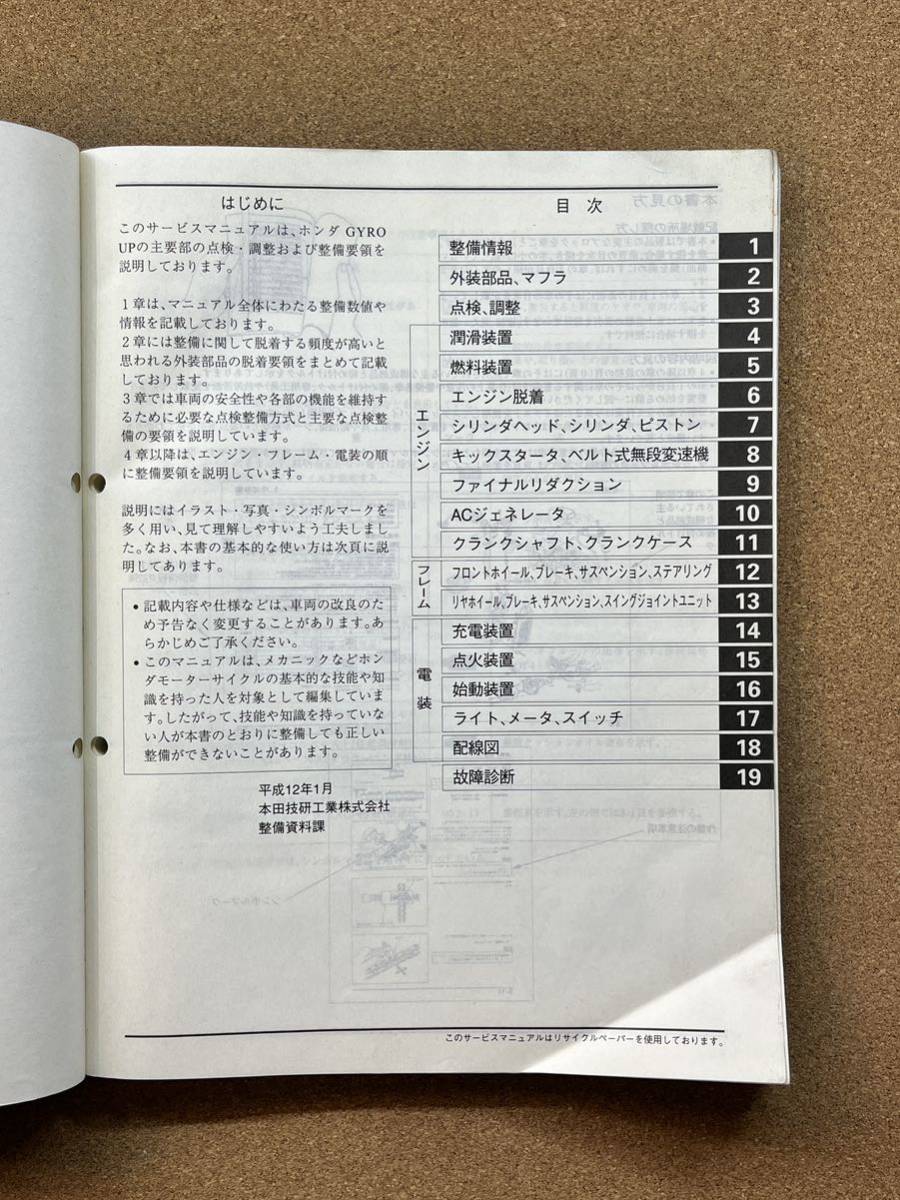 はじめに
このサービスマニュアルは、ホンダ GYRO
UPの主要部の点検・調整および整備要領を
説明しております。
1章は、マニュアル全体にわたる整備数値や
情報を記載しております。
2章には整備に関して脱着する頻度が高いと
思われる外装部品の脱着要領をまとめて記載
しております。
3章では車両の安全性や各部の機能を維持す
るために必要な点検整備方式と主要な点検整
備の要領を説明しています。
4章以降は、エンジン・フレーム・電装の順
に整備要領を説明しています。
説明にはイラスト・写真・シンボルマークを
多く用い、見て理解しやすいよう工夫しまし
た。なお、本書の基本的な使い方は次頁に説
明してあります。
• 記載内容や仕様などは、車両の改良のた
め予告なく変更することがあります。あ
らかじめご了承ください。
• このマニュアルは、メカニックなどホン
ダモーターサイクルの基本的な技能や知
識を持った人を対象として編集していま
す。したがって、技能や知識を持っていな
い人が本書のとおりに整備しても正しい
整備ができないことがあります。
平成12年1月
本田技研工業株式会社
整備資料課
目 次
整備情報 1
外装部品、マフラ 2
点検、調整 3
エンジン
潤滑装置 4
燃料装置 5
エンジン脱着 6
シリンダヘッド、シリンダ、ピストン 7
キックスタータ、ベルト式無段変速機 8
ファイナルリダクション 9
ACジェネレータ 10
クランクシャフト、クランクケース 11
フレーム
フロントホイール、ブレーキ、サスペンション、ステアリング 12
リヤホイール、ブレーキ、サスペンション、スイングジョイントユニット 13
電装
充電装置 14
点火装置 15
始動装置 16
ライト、メータ、スイッチ 17
配線図 18
故障診断 19
このサービスマニュアルはリサイクルペーパーを使用しております。